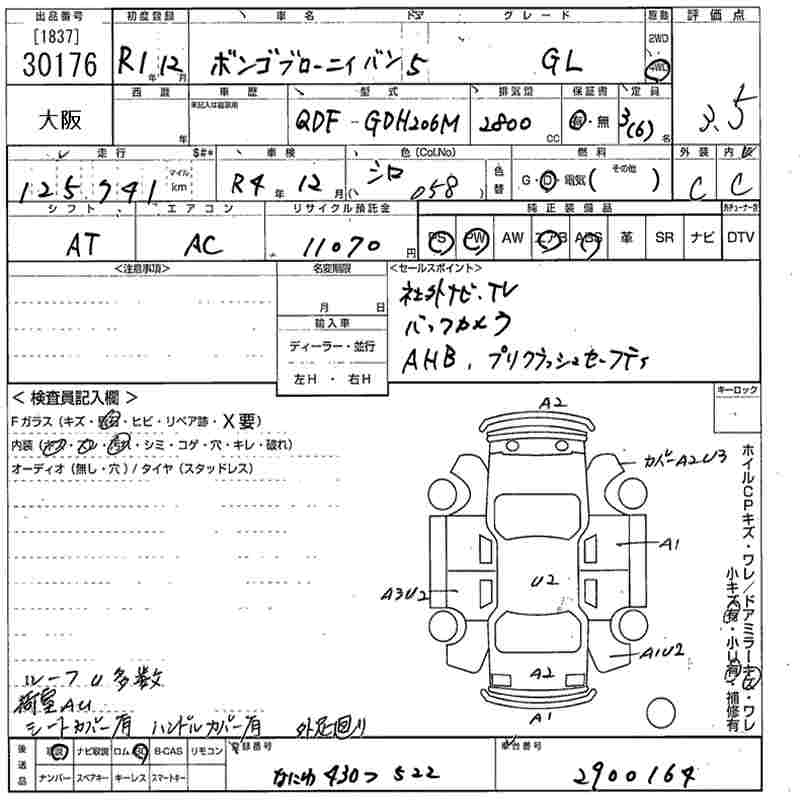 出品番号 初度登録 車名 ドア グレード 駆動 評価点
[1837]
30176 R1年12月 ボンゴブローニイバン 5 GL 2WD 4WD 3.5
大阪 西暦 年 車歴 未記入は自家用 型式 排気量 保証書 定員
QDF-GDH206M 2800cc 有・無 3(6)名
走行 $#* 車検 色(Col.No) 色替 燃料 外装 内装
125,741 マイル km R4年12月 シロ (058) G・D・電気( その他 ) C C
シフト エアコン リサイクル預託金 純正装備品
AT AC 11070円 PS PW AW エアB ABS 革 SR ナビ DTV
<注意事項> 名変期限 <セールスポイント>
月 日 社外ナビ、TV
輸入車 バックカメラ
ディーラー・並行 AHB、プリクラッシュセーフティ
左H・右H
<検査員記入欄> キーロック
Fガラス(キズ・飛石・ヒビ・リペア跡・X要)
内装(キズ・スレ・汚れ・シミ・コゲ・穴・キレ・破れ)
オーディオ(無し・穴)/タイヤ(スタッドレス)
A2
カバーA2U3
A1
U2
A3U2
A1U2
A2
A1
ホイルCPキズ・ワレ/ドアミラーキズ・ワレ
小キズ有・小U有・補修有
ルーフU多数
荷室AU
シートカバー有 ハンドルカバー有 外足廻り
後送品 取説 ナビ取説 ロム B-CAS リモコン 登録番号 車台番号
ナンバー スペアキー キーレス スマートキー なにわ 430つ 522 2900164